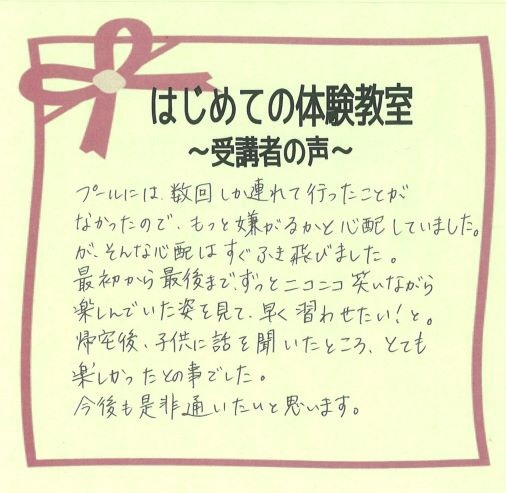 はじめての体験教室
～受講者の声～
プールには、数回しか連れて行ったことが
なかったので、もっと嫌がるかと心配していました。
が、そんな心配はすぐふき飛びました。
最初から最後まで、ずっとニコニコ笑いながら
楽しんでいた姿を見て、早く習わせたい！と。
帰宅後、子供に話を聞いたところ、とても
楽しかったとの事でした。
今後も是非通いたいと思います。